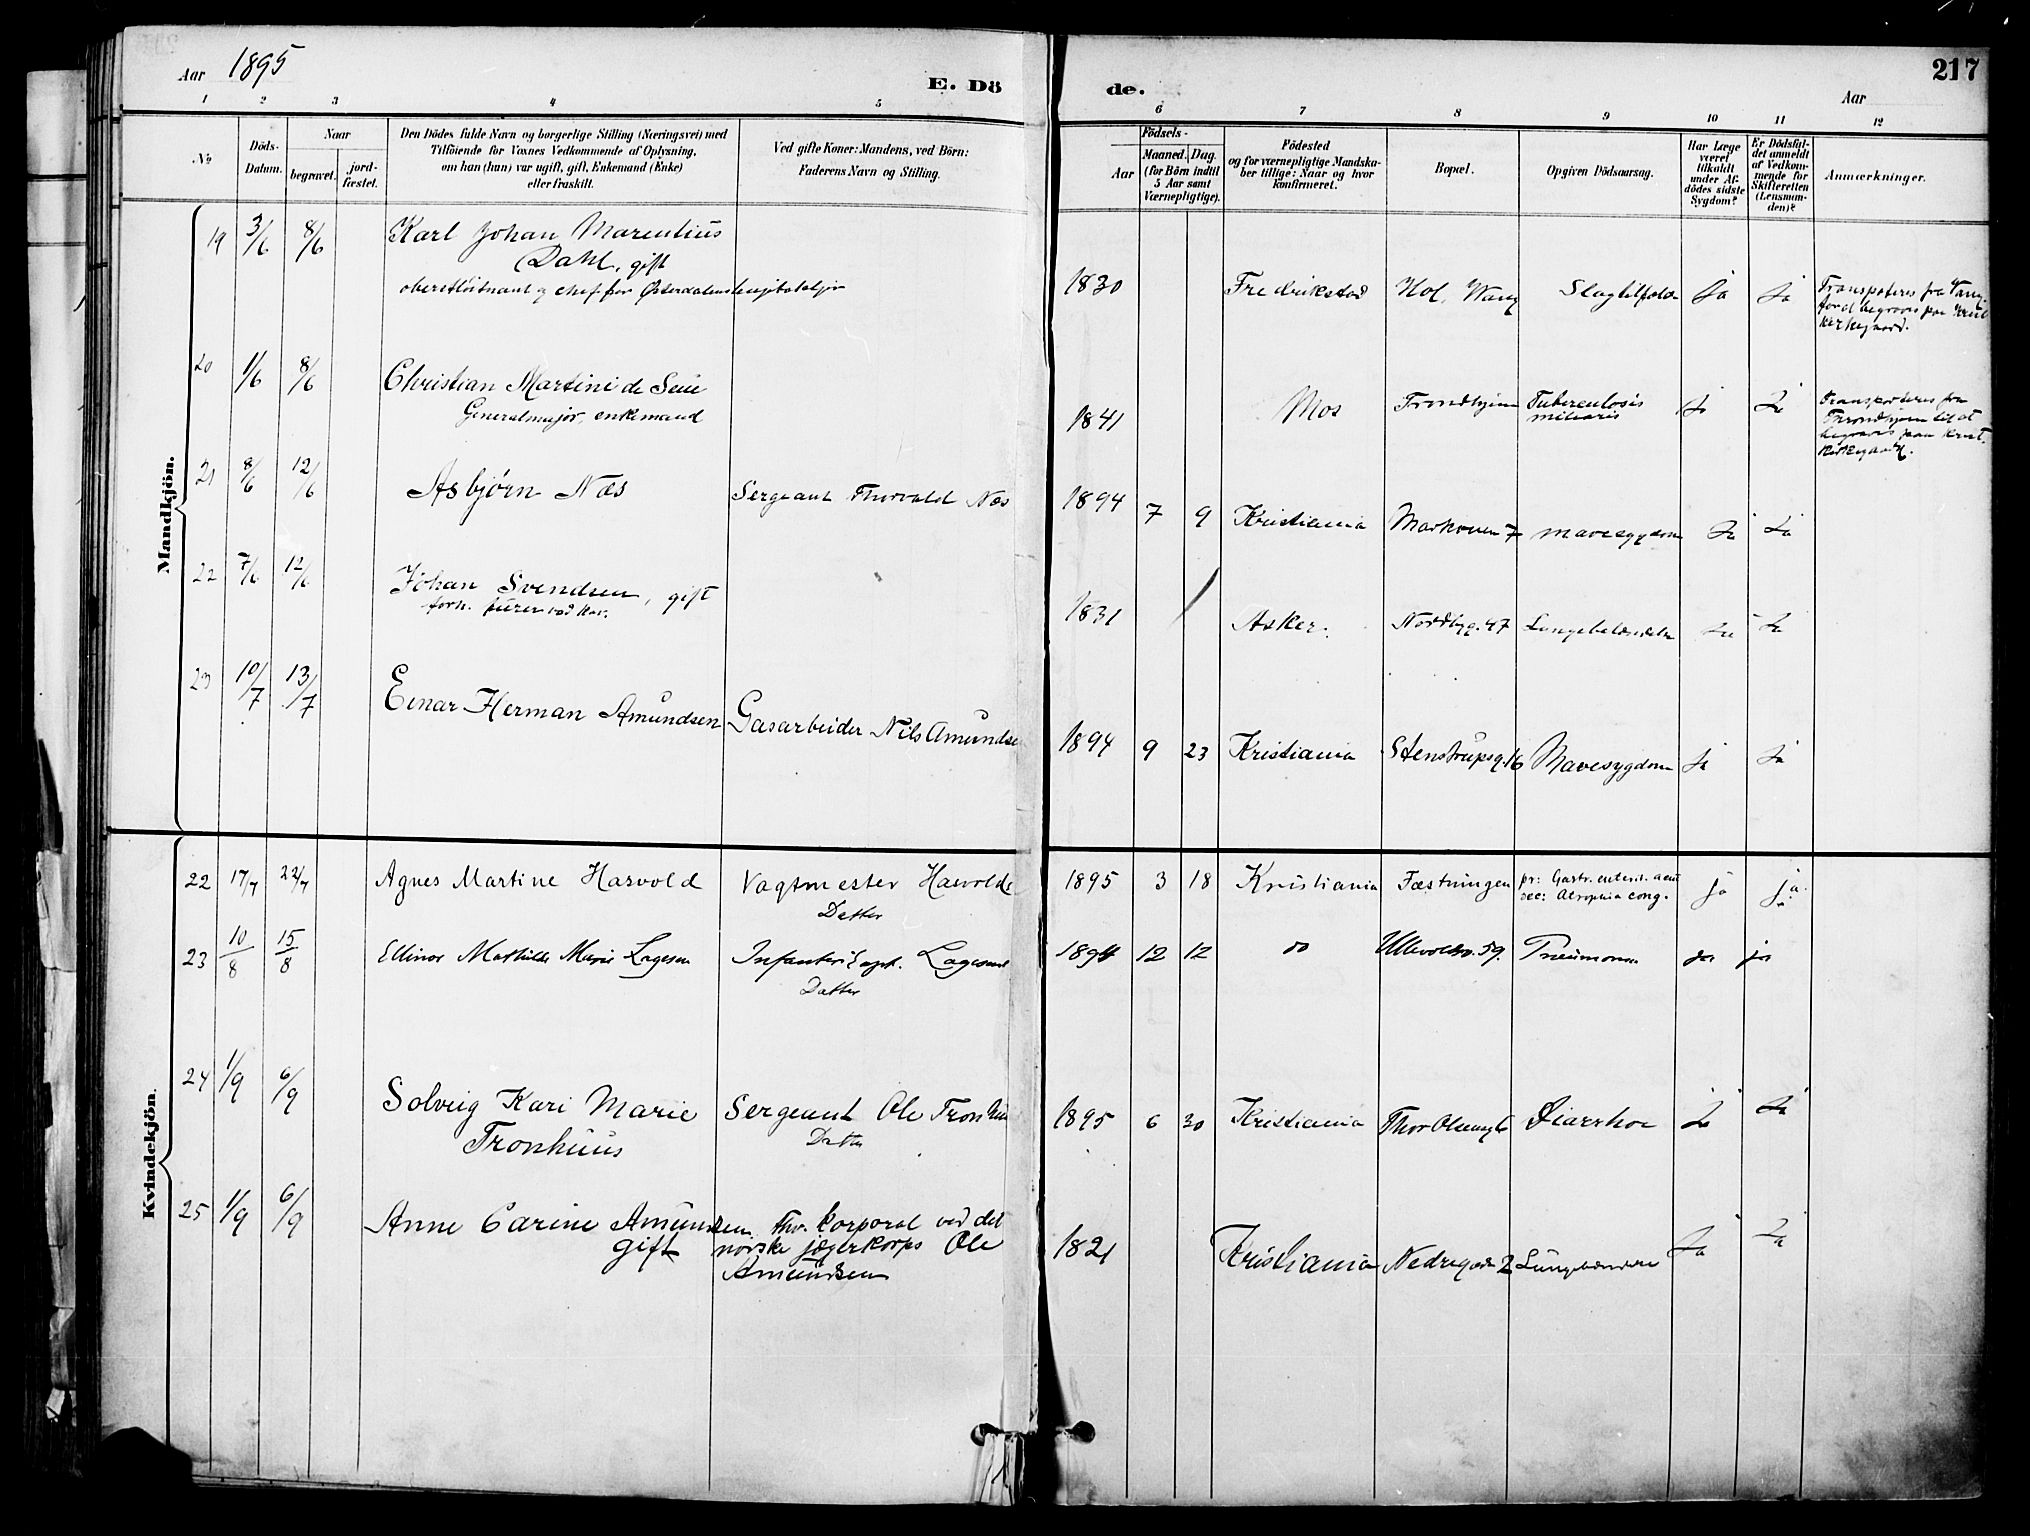 Aar 1895
E. Dö
de.
217
Aar
1 2 3 4 5 6 7 8 9 10 11 12
No
Döds-
Datum.
Naar
begravet.
jord-
fæstet.
Den Dödes fulde Navn og borgerlige Stilling (Næringsvei) med
Tilföiende for Voxnes Vedkommende af Oplysning,
om han (hun) var ugift, gift, Enkemand (Enke)
eller fraskilt.
Ved gifte Koner: Mandens, ved Börn:
Faderens Navn og Stilling.
Födsels-
Aar
Maaned. Dag.
(for Börn indtil
5 Aar samt
Værnepligtige).
Födested
og for værnepligtige Mandska-
ber tillige: Naar og hvor
konfirmeret.
Bopæl.
Opgiven Dödsaarsag.
Har Læge
været
tilkaldt
under Af-
dödes sidste
Sygdom?
Er Dödsfal-
det anmeldt
af Vedkom-
mende for
Skifteretten
(Lensman-
den)?
Anmærkninger.
Mandkjön.
19 3/6 8/6 Karl Johan Marentius
Dahl, gift
oberstløitnant og chef for Østerdalens
1830 Fredrikstad Hol, Wang Slagtilfælde Ja Ja
Transporteres fra Vang
for at begraves paa
kirkegaard.
20 1/6 8/6 Christian Martini de Seue
Generalmajor, enkemand
1841 Mos Trondhjem Tuberculosis
miliaris
Ja Ja
Transporteres fra
Throndhjem til at
begraves paa Krist.
kirkegaard.
21 8/6 12/6 Asbjørn Næs Sergeant Thorvald Næs
1894 7 9 Kristiania Markveien 7 Mavesygdom Ja Ja
22 7/6 12/6 Johan Svendsen, gift
forh. furer ved
1831 Asker. Nordbyg. 47 Lungebetændelse Ja Ja
23 10/7 13/7 Einar Herman Amundsen Gasarbeider Nils Amundse
1894 9 23 Kristiania Stenstrupsg. 16 Mavesygdom Ja Ja
Kvindekjön.
22 17/7 22/7 Agnes Martine Harvold Vagtmester Harvolds
Datter
1895 3 18 Kristiania Fæstningen pr: Gastr. enterit. acut
sec: Atrophia cong.
ja ja.
23 10/8 15/8 Ellinor Mathilde Marie Lagesen Infanterikapt. Lagesens
Datter
1894 12 12 do Ullevoldsv. 59. Pneumonia ja ja
24 1/9 6/9 Solveig Kari Marie
Tronhuus
Sergeant Ole Tronhuu
Datter
1895 6 30 Kristiania Thor Olsensg 6 Diarrhoe Ja Ja
25 1/9 6/9 Anne Carine Amundsen
gift
fhv. korporal ved det
norske jægerkorps Ole
Amundsen
1821 Kristiania Nedregade 2 Ja Ja